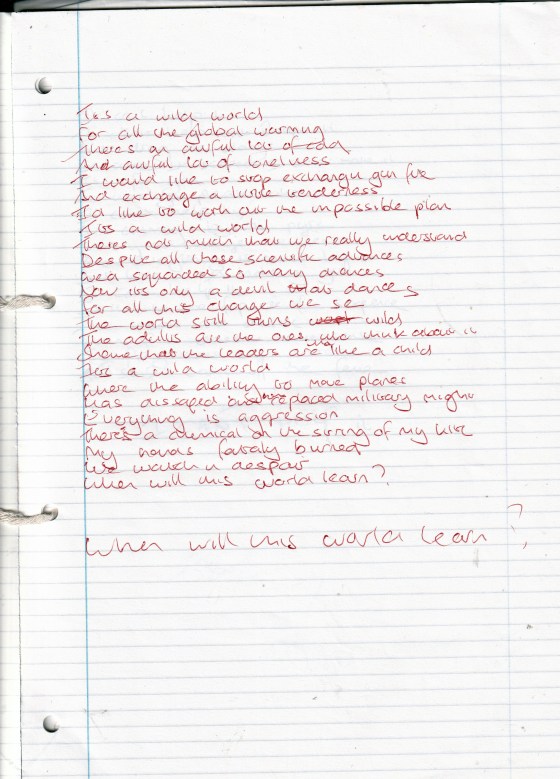 Its a wild world
For all the global warming
Theres an awful lot of cold
And awful lot of lonelness
I would like to stop exchangin gun fire
And exchange a little tenderness
I'd like to work out the impossible plan
Its a wild world
Theres not much that we really understand
Despite all these scientific advances
Weve squanded so many chances
Now its only a devil that dances
For all this change we se
The world still turns wild
The adults are the ones who think about it
Shame that the leaders are like a child
Its a wild world
Where the ability to move planes
Has replaced military might
Everything is aggression
There's a chemical on the string of my kite
My hands fataly burned
We watch in despair
When will this world learn?
When will this world learn?